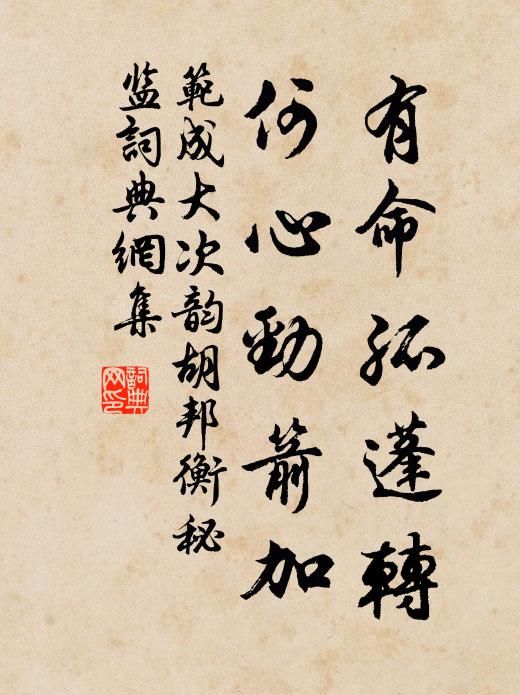 有命孤蓬轉
何心勁箭加
範成大次韵胡邦衡秘
监詞典網集
詞典
网印